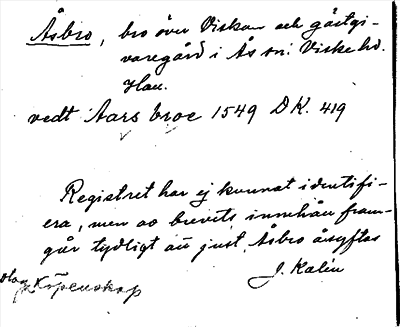 Åsbro, bro över Viskan och gästgi-
varegård i Ås sn. Viske hd.
Hall.
vedt Aars broe 1549 DK. 419
Registret har ej kunnat identifi-
era, men av brevets innehåll fram-
går tydligt att just Åsbro åsyftas
J. Kalén
Köpenskap